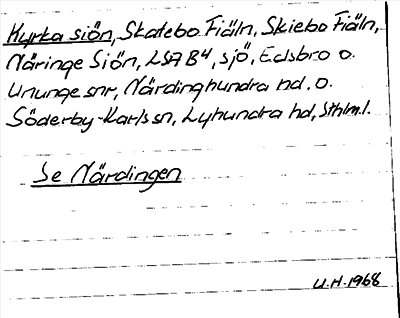 Kyrka siön, Skatebo Fiäln, Skiebo Fiäln,
Näringe Siön, LSA B4, sjö, Edsbro o.
Ununge snr, Närdinghundra hd, o.
Söderby-Karls sn, Lyhundra hd, Sthlm l.
Se Närdingen
U.H. 1968